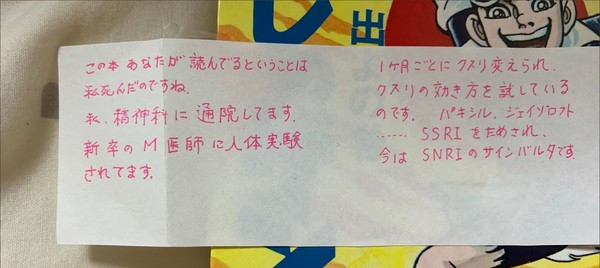 この本 あなたが 読んでるということは
私死んだのですね.
私、精神科に通院してます.
新卒のM医師に人体実験
されてます.
1ヶ月ごとにクスリ変えられ、
クスリの効き方を試している
のです. パキシル、ジェイゾロフト
…… SSRIをためされ、
今は SNRIのサインバルタです.
出